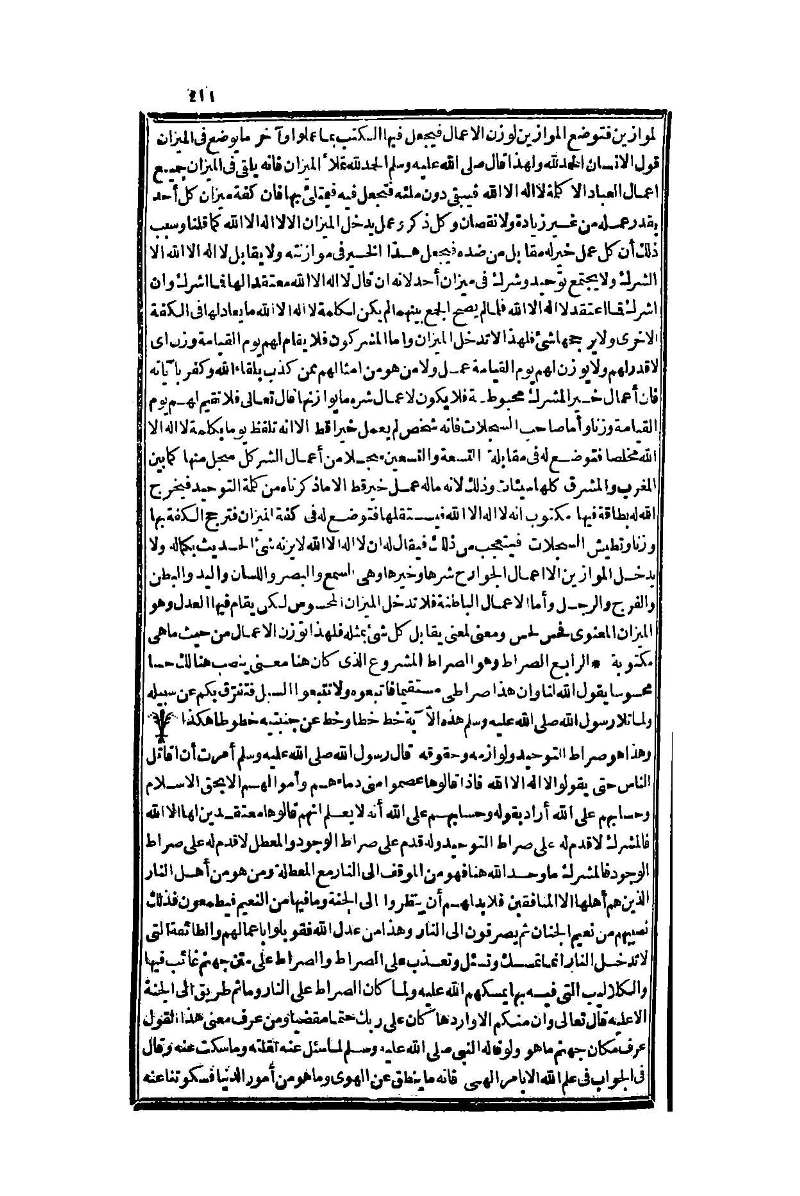 ٤١١
لموازين فتوضع الموازين لوزن الاعمال فيجعل فيها الكتب بما عملوا وآخر ما يوضع فى الميزان
قول الانسان الحمد لله ولهذا قال صلى الله عليه وسلم الحمد لله تملأ الميزان فانه يلقى فى الميزان جميع
اعمال العباد الا كلمة لا اله الا الله فيبقى دون ملئه فتجعل فيه فيمتلئ بها فان كفة ميزان كل أحد
بقدر عمله من غير زيادة ولا نقصان وكل ذكر وعمل يدخل الميزان الا لا اله الا الله كما قلنا وسبب
ذلك أن كل عمل خير له مقابل من ضده فيجعل هذا الخير فى موازنته ولا يقابل لا اله الا الله الا
الشرك ولا يجتمع توحيد وشرك فى ميزان أحد لانه ان قال لا اله الا الله معتقدا لها فما اشرك وان
اشرك فما اعتقد لا اله الا الله فلما لم يصح الجمع بينهما لم يكن لكلمة لا اله الا الله ما يعادلها فى الكفة
الاخرى ولا يرجحها شئ فلهذا لا تدخل الميزان واما المشركون فلا يقام لهم يوم القيامة وزن اى
لا قدر لهم ولا يوزن لهم يوم القيامة عمل ولا من هو من امثالهم ممن كذب بلقاء الله وكفر بآياته
فان أعمال خير المشرك محبوطة فلا يكون لاعمال شره ما يوازنها قال تعالى فلا نقيم لهم يوم
القيامة وزنا وأما صاحب السجلات فانه شخص لم يعمل خيرا قط الا انه تلفظ يوما بكلمة لا اله الا
الله مخلصا فتوضع له فى مقابلة التسعة والتسعين سجلا من أعمال الشر كل سجل منها كما بين
المغرب والمشرق كلها سيئات وذلك لانه ماله عمل خير قط الا ما ذكرناه من كلمة التوحيد فيخرج
الله له بطاقة فيها مكتوب انه لا اله الا الله فيستقلها فتوضع له فى كفة الميزان فترجح الكفة بها
وزنا وتطيش السجلات فيتعجب من ذلك فيقال له ان لا اله الا الله لا يزنه شئ الحديث بكماله ولا
يدخل الموازين الا اعمال الجوارح شرها وخيرها وهى السمع والبصر واللسان واليد والبطن
والفرج والرجل وأما الاعمال الباطنة فلا تدخل الميزان المحسوس لكن يقام فيها العدل وهو
الميزان المعنوى فحس لحس ومعنى لمعنى يقابل كل شئ بمثله فلهذا توزن الاعمال من حيث ما هى
مكتوبة * الرابع الصراط وهو الصراط المشروع الذى كان هنا معنى ينصب هنالك حسا
محسوسا يقول الله لنا وان هذا صراطى مستقيما فاتبعوه ولا تتبعوا السبل فتفرق بكم عن سبيله
ولما تلا رسول الله صلى الله عليه وسلم هذه الآية خط خطا وخط عن جنبتيه خطوطا هكذا
وهذا هو صراط التوحيد ولوازمه وحقوقه قال رسول الله صلى الله عليه وسلم أمرت أن اقاتل
الناس حتى يقولوا لا اله الا الله فاذا قالوها عصموا منى دماءهم وأموالهم الا بحق الاسلام
وحسابهم على الله أراد بقوله وحسابهم على الله أنه لا يعلم انهم قالوها معتقدين لها الا الله
فالمشرك لا قدم له على صراط التوحيد وله قدم على صراط الوجود والمعطل لا قدم له على صراط
الوجود فالمشرك ما وحد الله هنا فهو من الموقف الى النار مع المعطلة ومن هو من أهل النار
الذين هم أهلها الا المنافقين فلا بد لهم أن ينظروا الى الجنة وما فيها من النعيم فيطمعون فذلك
نصيبهم من نعيم الجنان ثم يصرفون الى النار وهذا من عدل الله فقوبلوا باعمالهم والطائفة التى
لا تدخل النار انما تمسك وتسئل وتعذب على الصراط والصراط على متن جهنم غائب فيها
والكلاليب التى فيه بها يمسكهم الله عليه ولما كان الصراط على النار وما ثم طريق الى الجنة
الا عليه قال تعالى وان منكم الا واردها كان على ربك حتما مقضيا ومن عرف معنى هذا القول
عرف مكان جهنم ما هو ولو قاله النبى صلى الله عليه وسلم لما سئل عنه لقلته وما سكت عنه وقال
فى الجواب فى علم الله الا بامر الهى فانه ما ينطق عن الهوى وما هو من أمور الدنيا فسكوتنا عنه